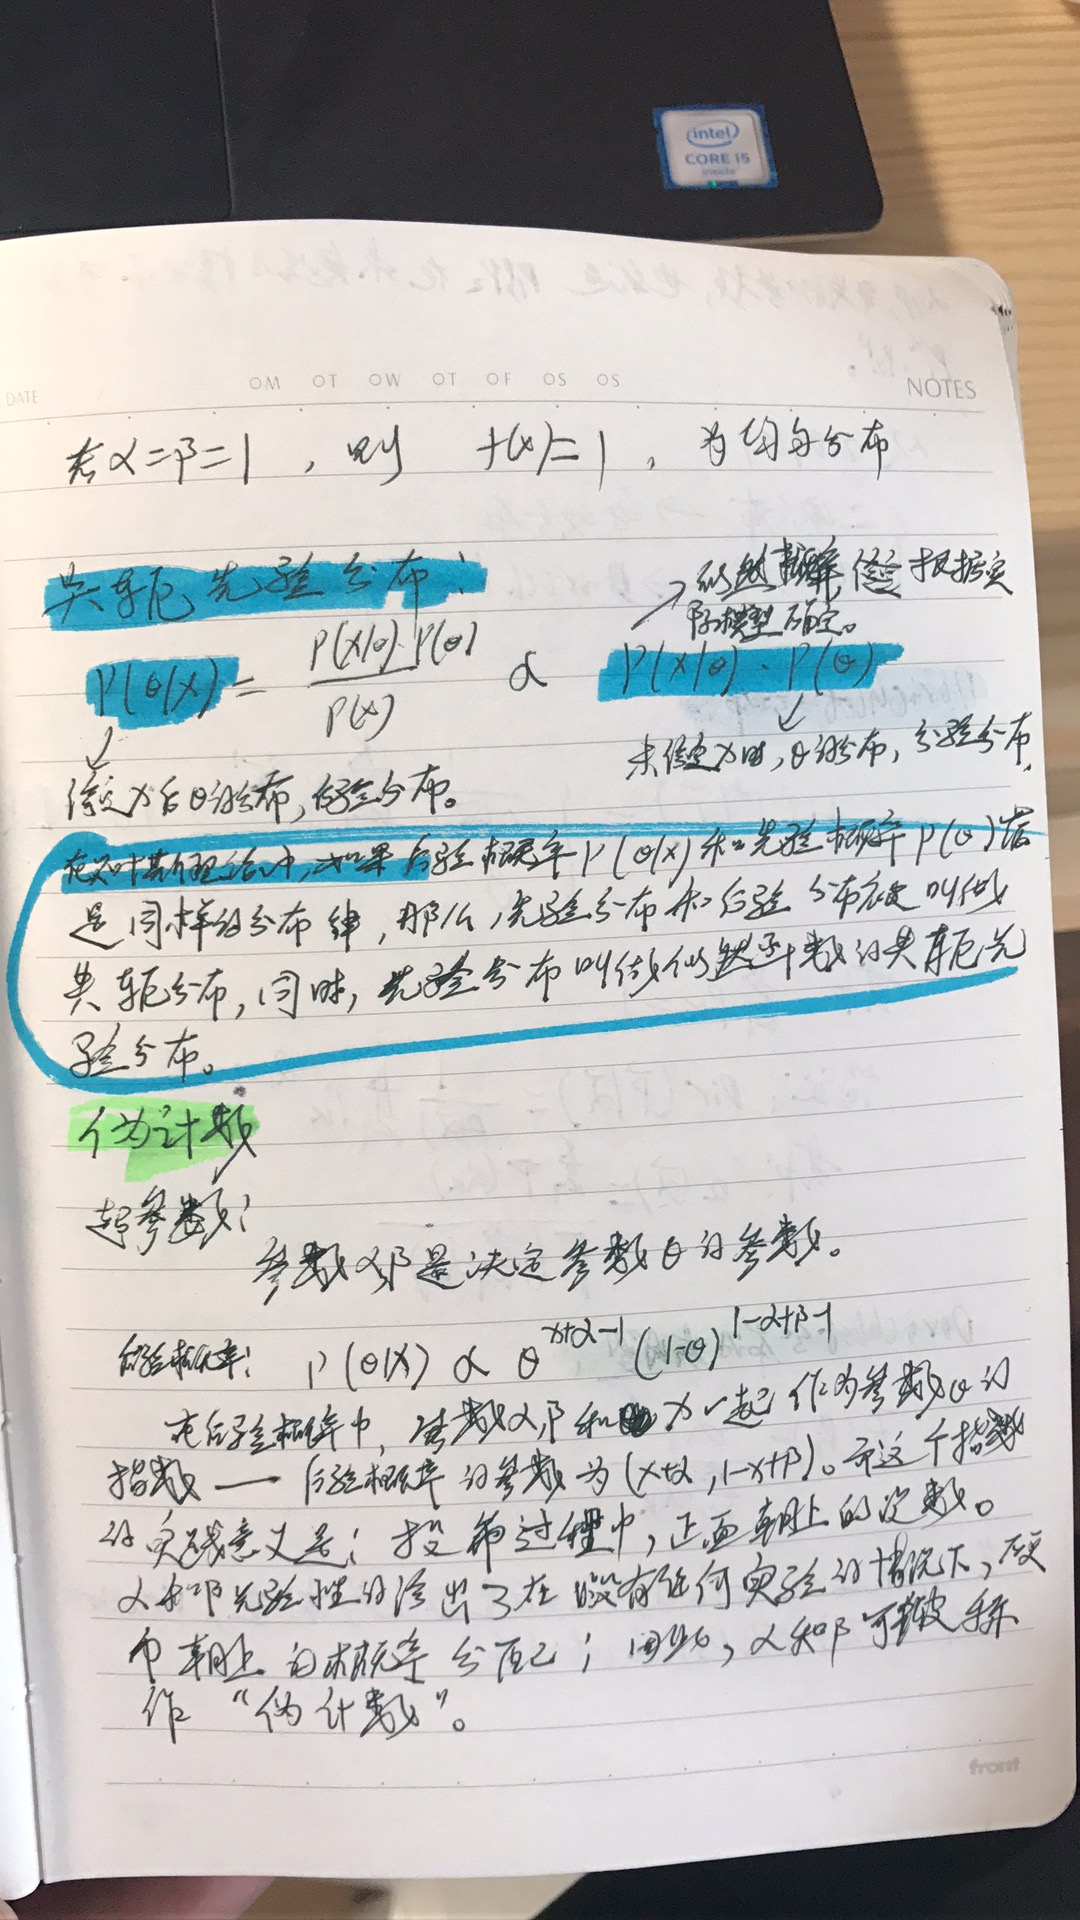 intel
CORE i5
inside
DATE OM OT OW OT OF OS OS NOTES
若α=β=1，则 f(x)=1，为均匀分布
共轭先验分布：
似然概率,
际模型确定。
P(θ|x) = P(x|θ)·P(θ) / P(x) ∝ P(x|θ)·P(θ)
未给定x时，θ的分布，
给定x后θ的分布，后验分布。
在贝叶斯理论中，如果后验概率P(θ|x)和先验概率P(θ)满
是同样的分布律，那么，先验分布和后验分布被叫做
共轭分布，同时，先验分布叫做似然函数的共轭先
验分布。
伪计数
超参数：
参数α,β是决定参数θ的参数。
后验概率：P(θ|x) ∝ θ^{x+α-1} (1-θ)^{1-α+β-1}
在后验概率中，参数α,β和x一起作为参数θ的
指数——后验概率的参数为(x+α,1-x+β)。而这个指数
的实践意义是：投币过程中，正面朝上的次数。
α和β先验性的给出了在没有任何实验的情况下，硬
币朝上的概率分配；因此，α和β可被称
作“伪计数”。
front